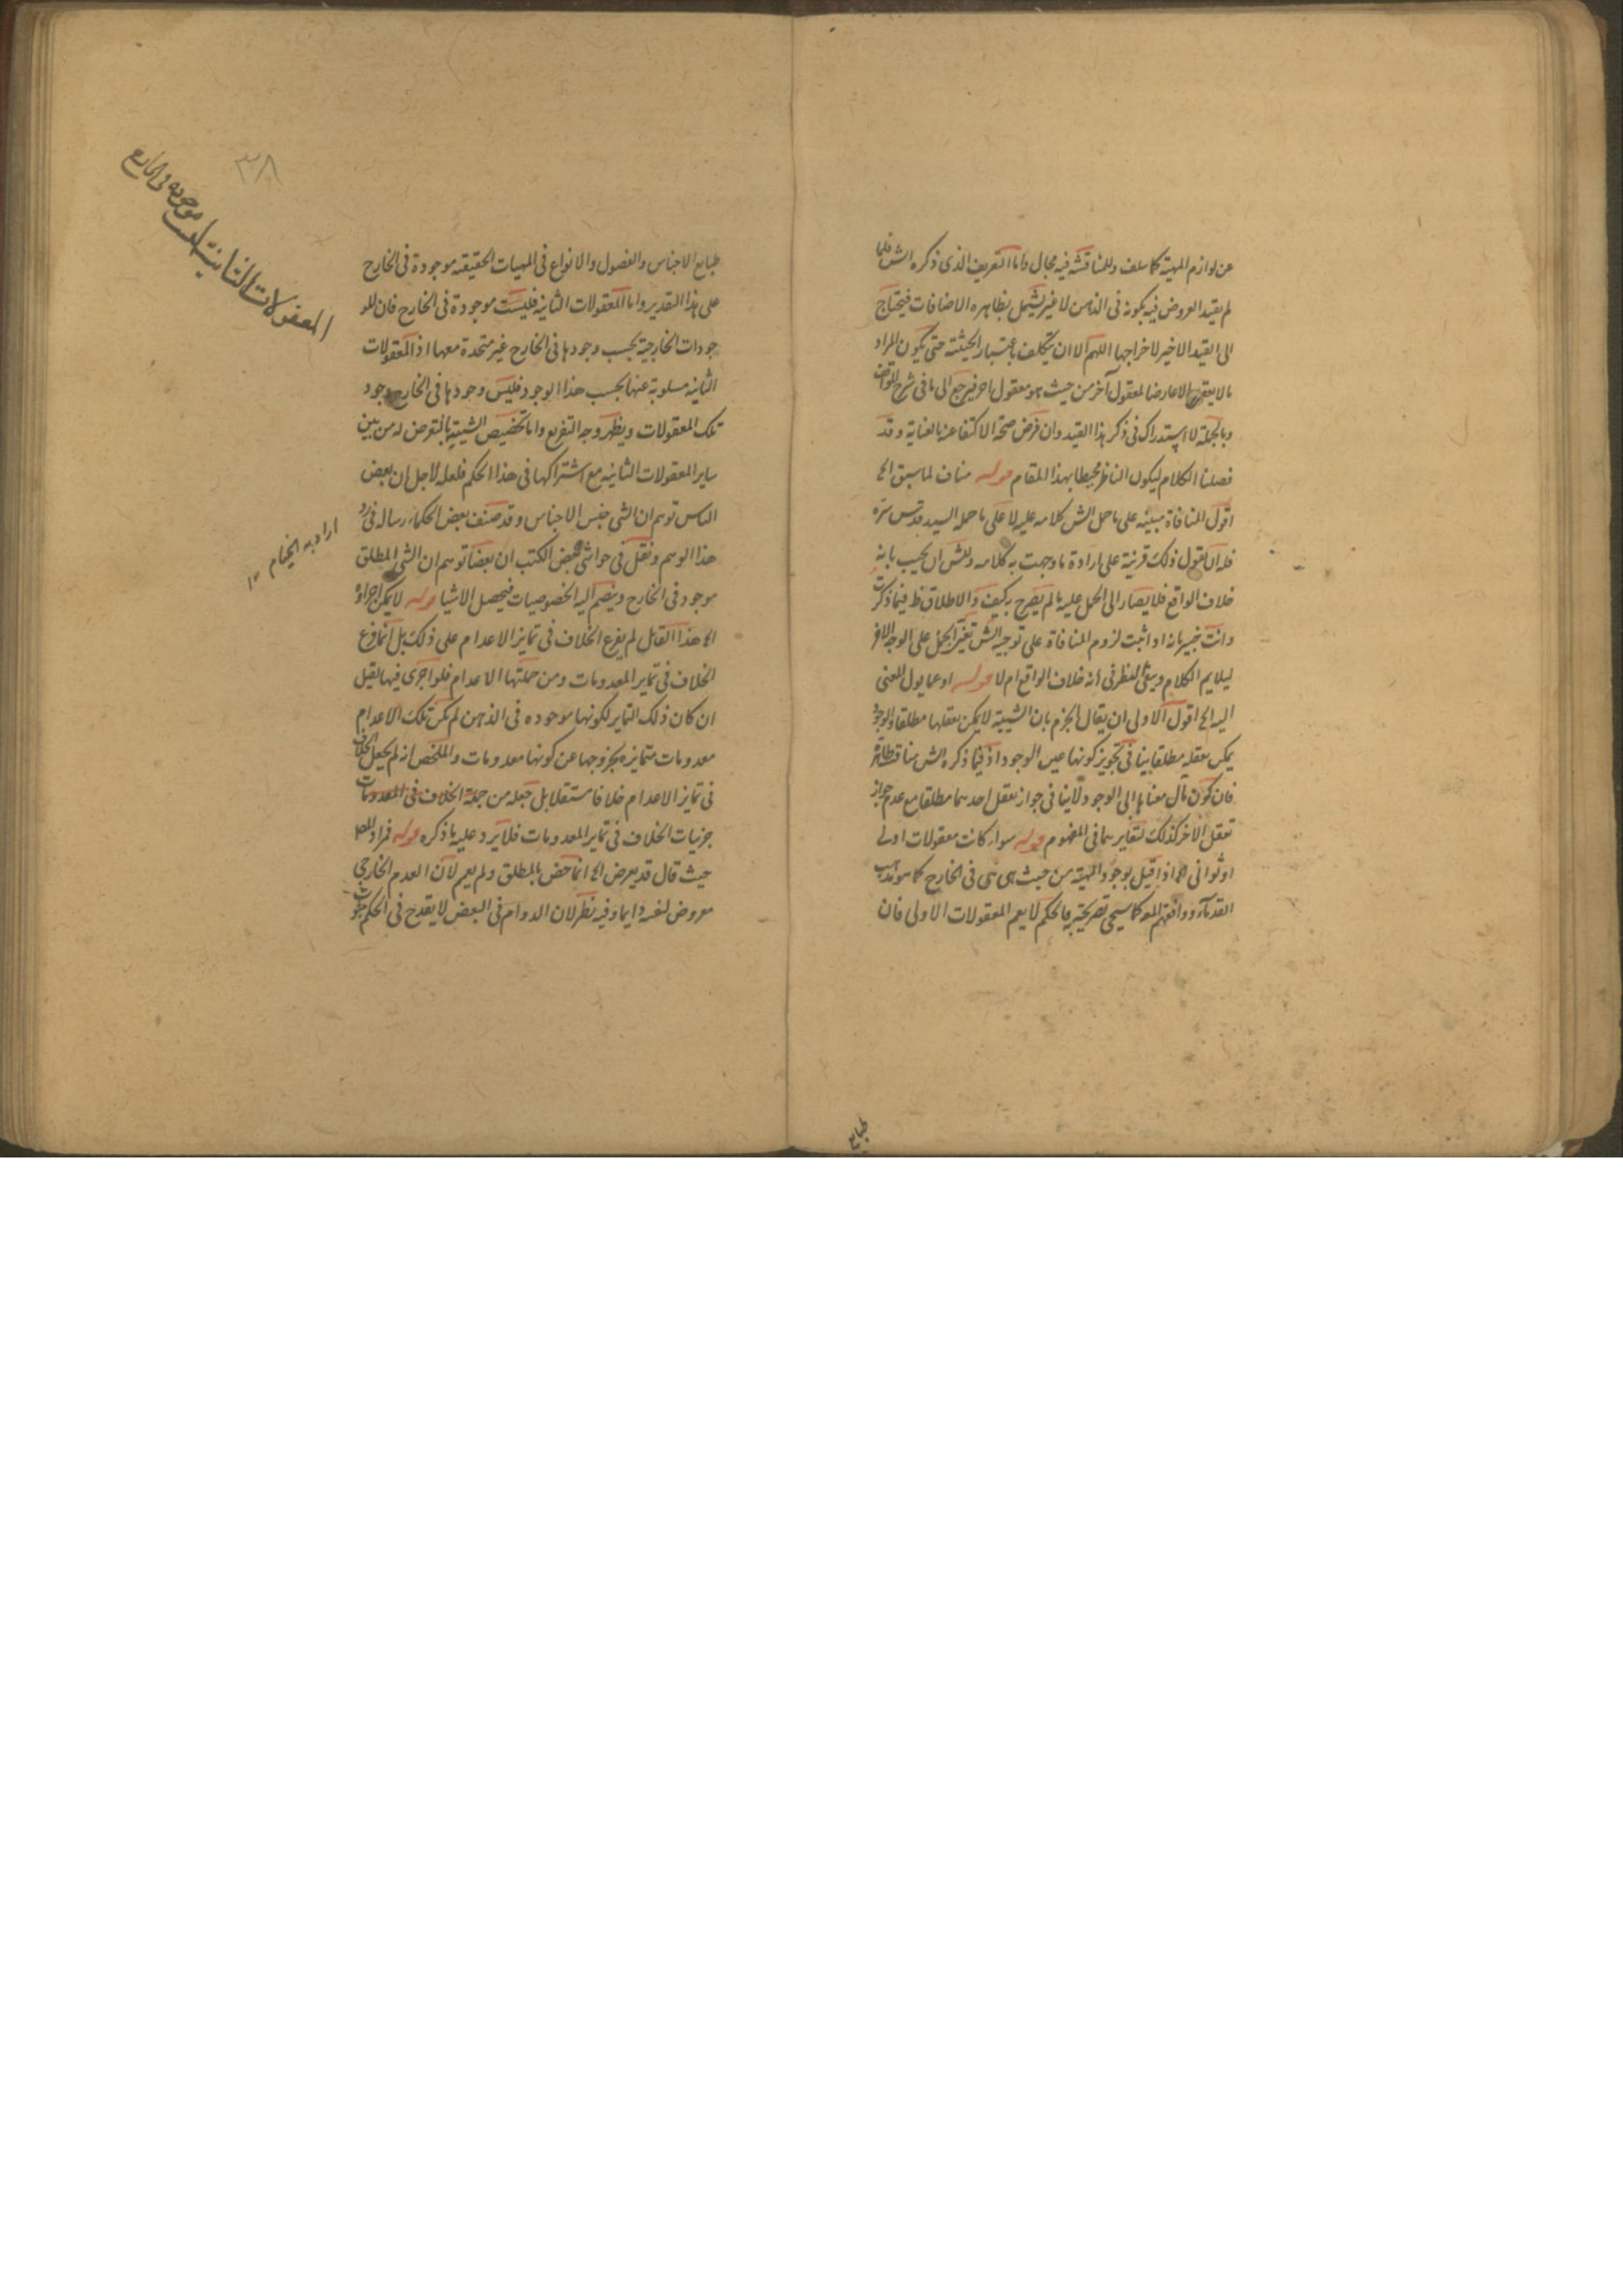 عن لوازم المهية كما سلف وللمناقشة فيه مجال واما التعريف الذى ذكره الش فلما
لم يقيد العروض فيه بكونه فى الذهن لا غير يشمل بظاهره الاضافات فيحتاج
الى القيد الاخير لاخراجها اللهم الا ان يتكلف باعتبار الحيثية حتى يكون المراد
ما لا يعقل الا عارضا لمعقول آخر من حيث هو معقول فيرجع الى ما فى شرح المواقف
وبالجملة لا استدراك فى ذكر هذا القيد وان فرض صحة الاكتفا عنه بالعناية وقد
فصلنا الكلام ليكون الناظر محيطا بهذا المقام قوله مناف لما سبق الخ
اقول المنافاة مبنية على ما حمل الش كلامه عليه لا على ما حمله السيد قدس سره
فله ان يقول ذلك قرينة على ارادة ما وجهت به كلامه وللش ان يجيب بانه
خلاف الواقع فلا يصار الى الحمل عليه ما لم يصرح به كيف والاطلاق ظ فيما ذكرت
وانت خبير بانه اذا ثبت لزوم المنافاة على توجيه الش تعين الحمل على الوجه الاخر
ليلايم الكلام ويبقى النظر فى انه خلاف الواقع ام لا قوله او عما يول المعنى
اليه الخ اقول الاولى ان يقال الجزم بان الشيئية لا يمكن تعقلها مطلقا والوجود
يمكن تعقله مطلقا ينافى تجويز كونها عين الوجود اذ فيما ذكره الش مناقشة ظاهرة
فان كون مآل معناها الى الوجود لا ينافى جواز تعقل احدهما مطلقا مع عدم جواز
تعقل الاخر كذلك لتغايرهما فى المفهوم قوله سواء كانت معقولات اولى
او ثوانى الخ اذا قيل بوجود المهية من حيث هى هى فى الخارج كما هو مذهب
القدماء ووافقهم المص كما سيجى تصريحه به فالحكم لا يعم المعقولات الاولى فان
طبايع
٣٨
المعقولات الثانية ليست موجودة فى الخارج
طبايع الاجناس والفصول والانواع فى المهيات الحقيقية موجودة فى الخارج
على هذا التقدير واما المعقولات الثانية فليست موجودة فى الخارج فان للو
جودات الخارجية بحسب وجودها فى الخارج غير متحدة معها اذ المعقولات
الثانية مسلوبة عنها بحسب هذا الوجود فليس وجودها فى الخارج وجود
تلك المعقولات ويظهر وجه التفريع واما تخصيص الشيئية بالتعرض له من بين
ساير المعقولات الثانية مع اشتراكها فى هذا الحكم فلعله لاجل ان بعض
الناس توهم ان الشى جنس الاجناس وقد صنف بعض الحكماء رسالة فى رد
اراد به الخيام ١٢
هذا الوهم ونقل فى حواشى بعض الكتب ان بعضا توهم ان الشى المطلق
موجود فى الخارج وينضم اليه الخصوصيات فيحصل الاشيا قوله لا يمكن اجراؤه
الخ هذا القائل لم يفرع الخلاف فى تمايز الاعدام على ذلك بل انما فرع
الخلاف فى تمايز المعدومات ومن جملتها الاعدام فلو اجرى فيها لقيل
ان كان ذلك التمايز لكونها موجودة فى الذهن لم تكن تلك الاعدام
معدومات متمايزة لخروجها عن كونها معدومات والملخص انه لم يجعل الخلاف
فى تمايز الاعدام خلافا مستقلا بل جعله من جملة الخلاف فى المعدومات
جزئيات الخلاف فى تمايز المعدومات فلا يرد عليه ما ذكره قوله فمراد المص
حيث قال قد يعرض الخ انما خص بالمطلق ولم يعمم لان العدم الخارجى
معروض لنفسه دايما وفيه نظر لان الدوام فى البعض لا يقدح فى الحكم